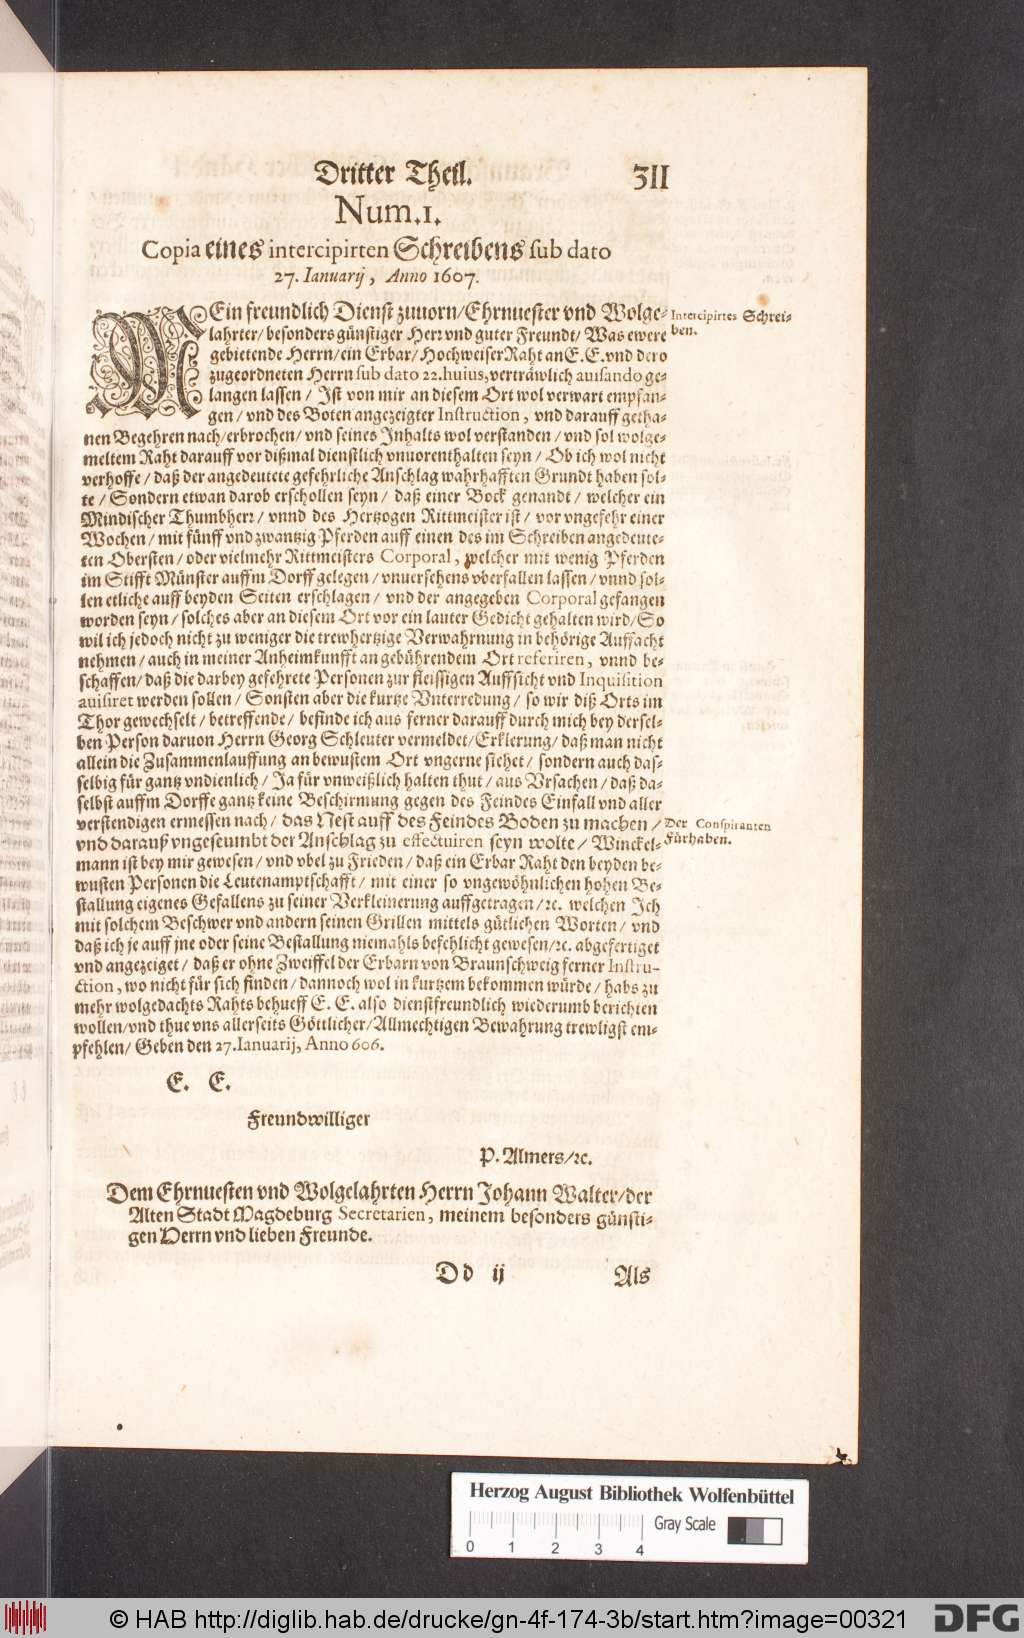 Dritter Theil. 311
Num. 1.
Copia eines intercipirten Schreibens sub dato
27. Ianuarij, Anno 1607.
MEin freundlich Dienst zuuorn/Ehrnuester vnd Wolge-
lahrter/besonders günstiger Herr vnd guter Freundt/Was ewere
gebietende Herrn/ein Erbar/HochweiserRaht an E.E. vnd dero
zugeordneten Herrn sub dato 22. huius, verträwlich auisando ge-
langen lassen/Ist von mir an diesem Ort wol verwart empfan-
gen/vnd des Boten angezeigter Instruction, vnd darauff getha-
nen Begehren nach/erbrochen/vnd seines Inhalts wol verstanden/vnd sol wolge-
meltem Raht darauff vor dißmal dienstlich vnuorenthalten seyn/Ob ich wol nicht
verhoffe/daß der angedeutete gefehrliche Anschlag wahrhafften Grundt haben sol-
te/Sondern etwan darob erschollen seyn/daß einer Bock genandt/welcher ein
Mindischer Thumbherr/vnnd des Hertzogen Rittmeister ist/vor vngefehr einer
Wochen/mit fünff vnd zwantzig Pferden auff einen des im Schreiben angedeute-
ten Obersten/oder vielmehr Rittmeisters Corporal, welcher mit wenig Pferden
im Stifft Münster auffm Dorff gelegen/vnuersehens vberfallen lassen/vnnd sol-
len etliche auff beyden Seiten erschlagen/vnd der angegeben Corporal gefangen
worden seyn/solches aber an diesem Ort vor ein lauter Gedicht gehalten wird/So
wil ich jedoch nicht zu weniger die trewhertzige Verwahrnung in behörige Auffacht
nehmen/auch in meiner Anheimkunfft an gebührendem Ort referiren, vnnd be-
schaffen/daß die darbey gefehrete Personen zur fleissigen Auffsicht vnd Inquisition
auisiret werden sollen/Sonsten aber die kurtze Vnterredung/so wir diß Orts im
Thor gewechselt/betreffende/befinde ich aus ferner darauff durch mich bey dersel-
ben Person daruon Herrn Georg Schleuter vermeldet/Erklerung/daß man nicht
allein die Zusammenlauffung an bewustem Ort vngerne siehet/sondern auch das-
selbig für gantz vndienlich/Ja für vnweißlich halten thut/aus Vrsachen/daß da-
selbst auffm Dorffe gantz keine Beschirmung gegen des Feindes Einfall vnd aller
verstendigen ermessen nach/das Nest auff des Feindes Boden zu machen/
vnd darauß vngeseumbt der Anschlag zu effectuiren seyn wolte/Winckel-
mann ist bey mir gewesen/vnd vbel zu Frieden/daß ein Erbar Raht den beyden be-
wusten Personen die Leutenamptschafft/mit einer so vngewöhnlichen hohen Be-
stallung eigenes Gefallens zu seiner Verkleinerung auffgetragen/ꝛc. welchen Ich
mit solchem Beschwer vnd andern seinen Grillen mittels gütlichen Worten/vnd
daß ich je auff jne oder seine Bestallung niemahls befehlicht gewesen/ꝛc. abgefertiget
vnd angezeiget/daß er ohne Zweiffel der Erbarn von Braunschweig ferner Instru-
ction, wo nicht für sich finden/dannoch wol in kurtzem bekommen würde/habs zu
mehr wolgedachts Rahts behueff E. E. also dienstfreundlich wiederumb berichten
wollen/vnd thue vns allerseits Göttlicher/Allmechtigen Bewahrung trewligst em-
pfehlen/Geben den 27. Ianuarij, Anno 606.
E. E.
Freundwilliger
P. Almers/ꝛc.
Dem Ehrnuesten vnd Wolgelahrten Herrn Johann Walter/der
Alten Stadt Magdeburg Secretarien, meinem besonders günsti-
gen Herrn vnd lieben Freunde.
Dd ij Als
Intercipirtes Schrei-
ben.
Der Conspiranten
Fürhaben.
Herzog August Bibliothek Wolfenbüttel
Gray Scale
0 1 2 3 4
© HAB http://diglib.hab.de/drucke/gn-4f-174-3b/start.htm?image=00321
DFG